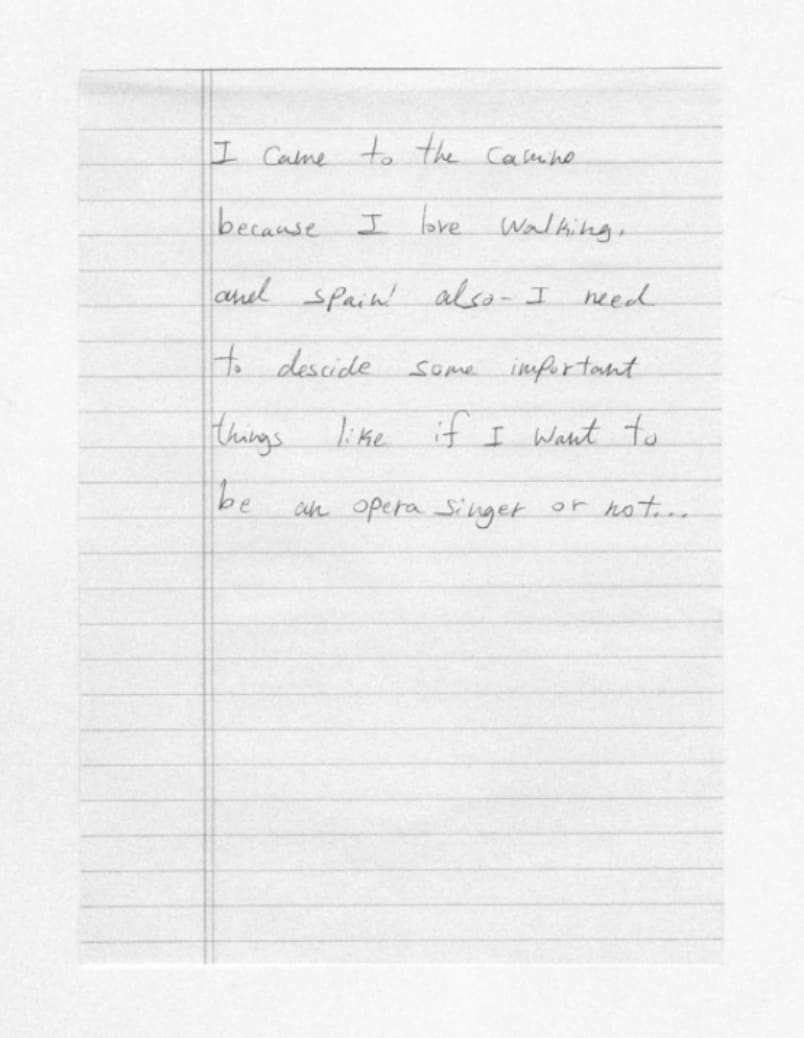 I came to the camino
because I love walking.
and spain! also - I need
to descide some important
things like if I want to
be an opera singer or not...